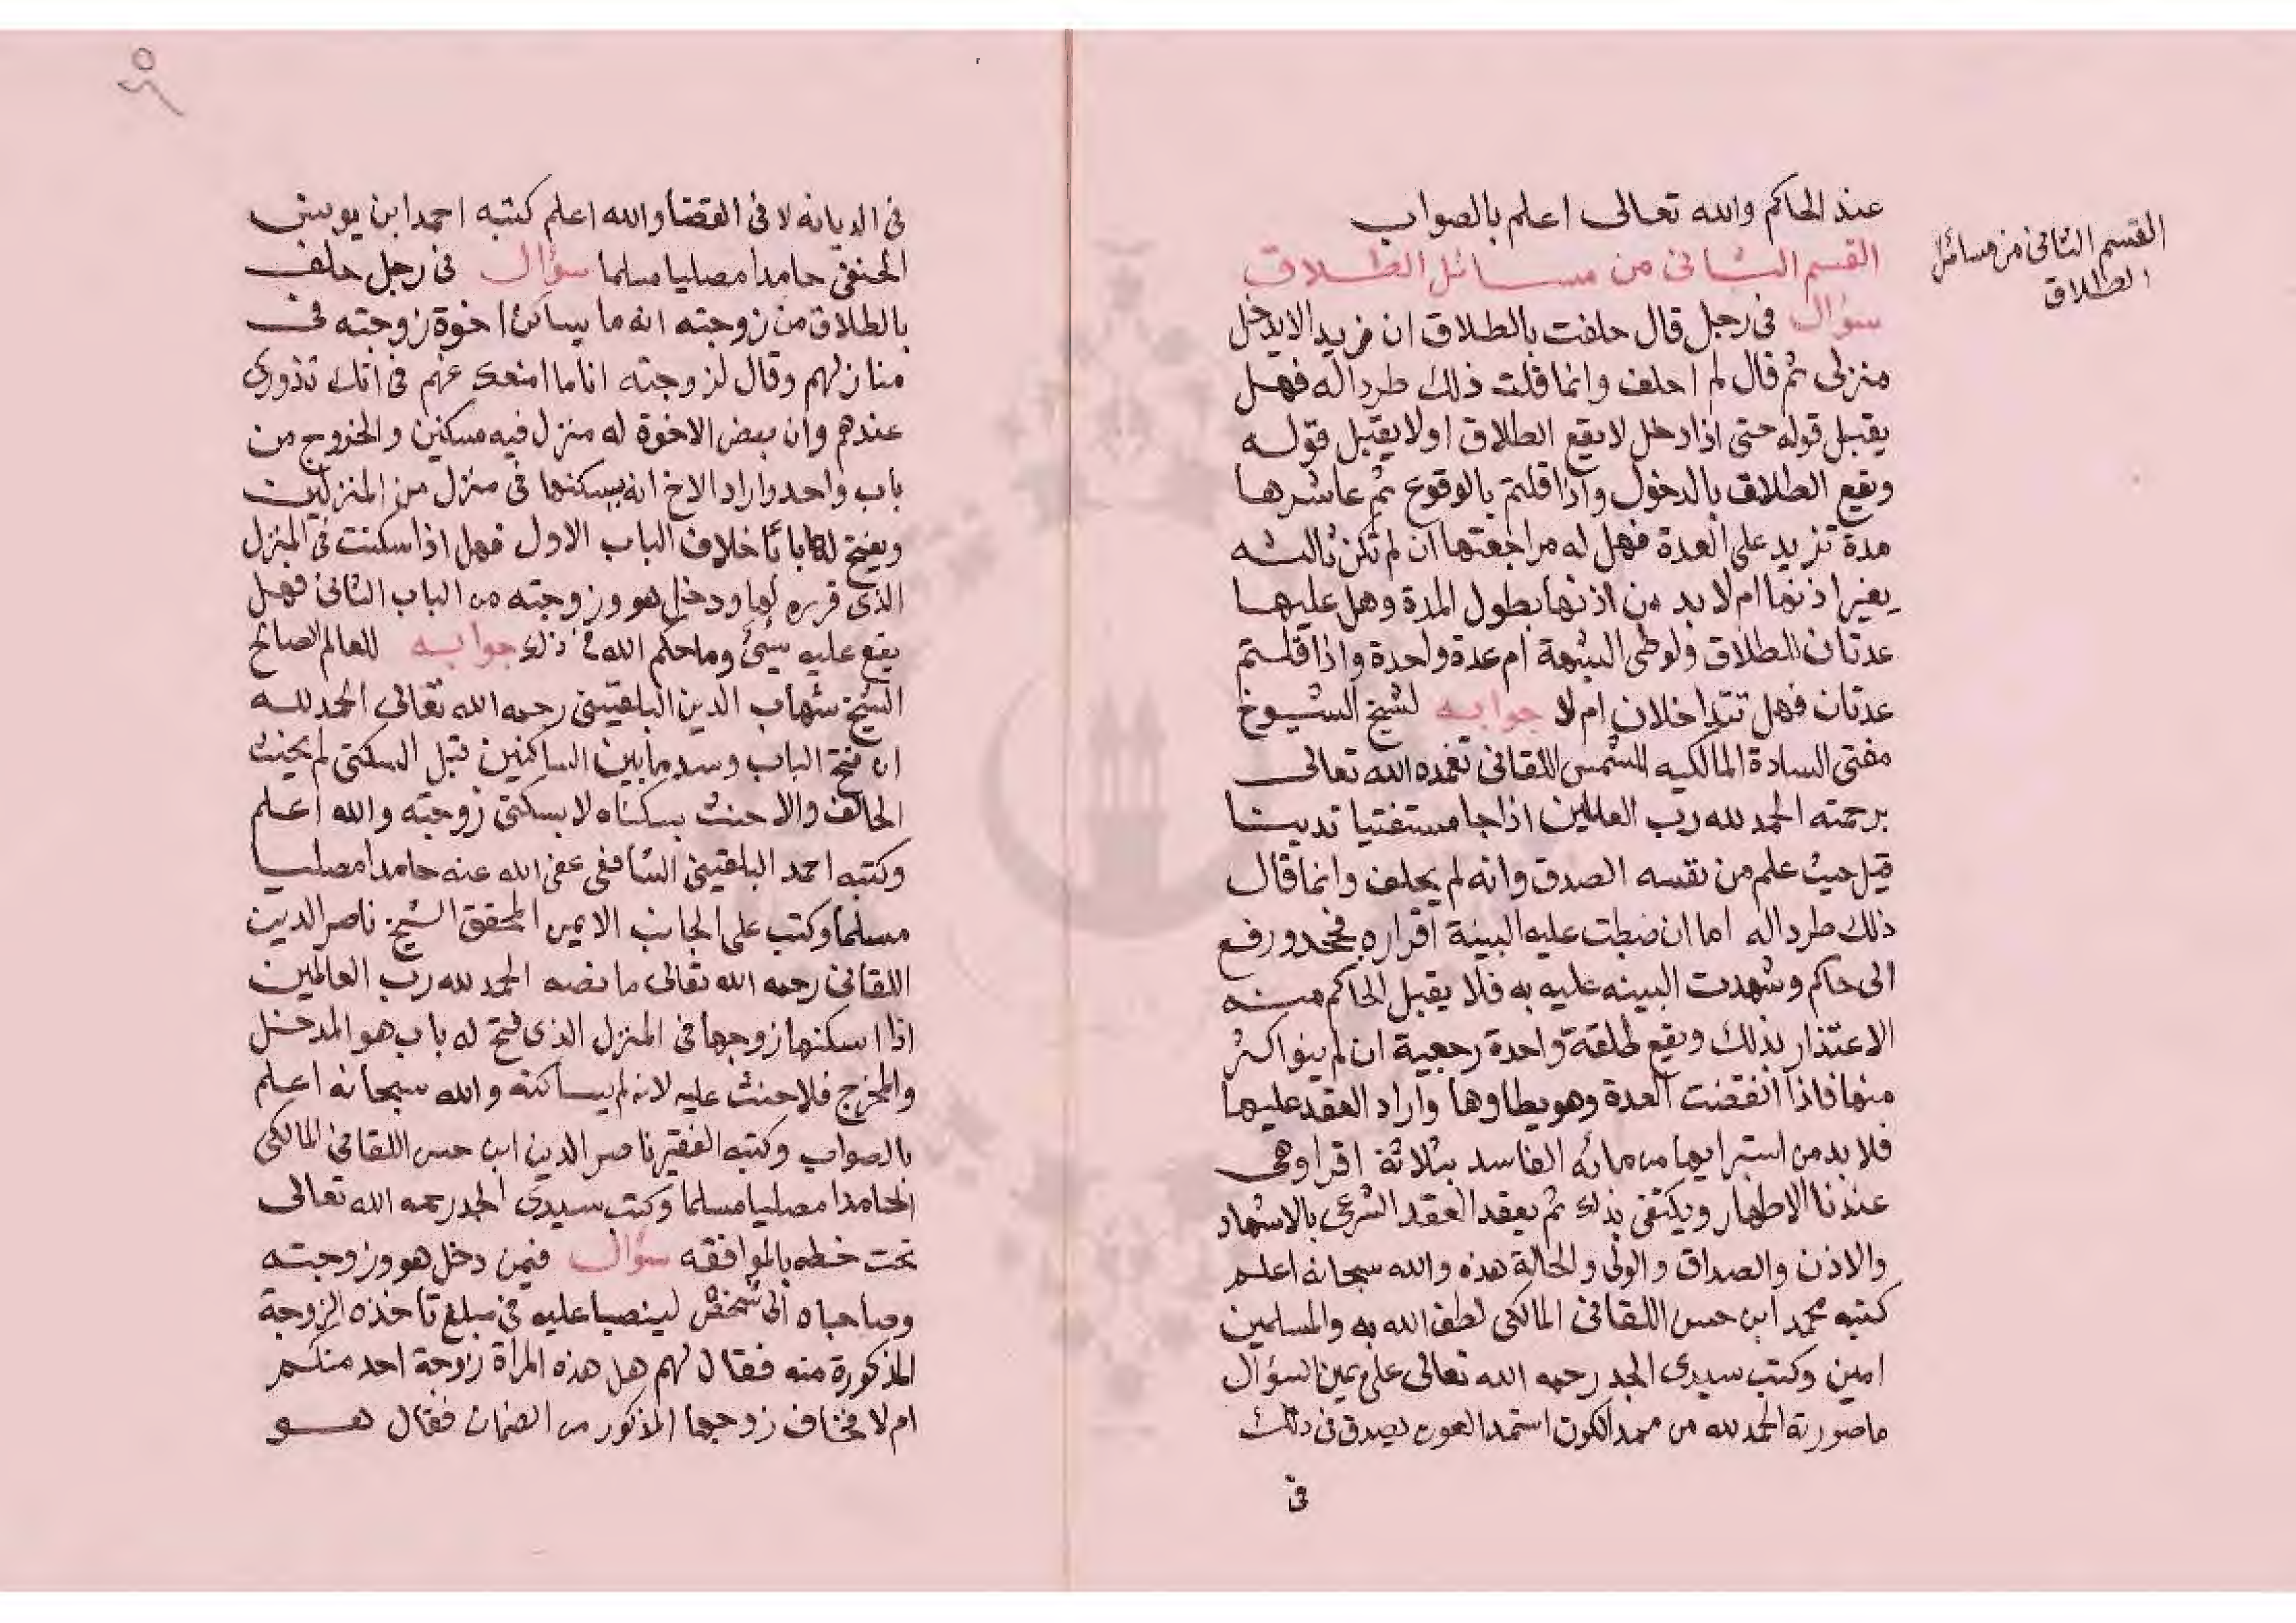 القسم الثانى من مسائل
الطلاق
عند الحاكم والله تعالى اعلم بالصواب
القسم الثانى من مسائل الطلاق
سؤال فى رجل قال حلفت بالطلاق ان فريد الا يدخل
منزلى ثم قال لم احلف وانما قلت ذلك طردا له فهل
يقبل قوله حتى اذا دخل لا يقع الطلاق او لا يقبل قوله
ويقع الطلاق بالدخول واذا قلتم بالوقوع ثم عاشرها
مدة تزيد على العدة فهل له مراجعتها ان لم تكن ثالثه
بغير اذنها ام لا بد من اذنها بطول المدة وهل عليها
عدتان للطلاق ولوطى الشبهة ام عدة واحدة واذا قلتم
عدتان فهل تتداخلان ام لا جوابه لشيخ الشيوخ
مفتى السادة المالكيه الشمس اللقانى تغمده الله تعالى
برحمته الحمد لله رب العالمين اذا جا مستفتيا تدينا
قبل حيث علم من نفسه الصدق وانه لم يحلف وانما قال
ذلك طردا له اما ان ضبطت عليه البينة اقراره فجحد ورفع
الى حاكم وشهدت البينه عليه به فلا يقبل الحاكم منه
الاعتذار بذلك ويقع طلقة واحدة رجعية ان لم ينو اكثر
منها فاذا انقضت العدة وهو يطاوها واراد العقد عليها
فلا بد من استبرايها من مائه الفاسد بثلاثة اقرا وهى
عندنا الاطهار ويكتفى بذلك ثم يعقد العقد الشرعى بالاشهاد
والاذن والصداق والولى والحالة هذه والله سبحانه اعلم
كتبه محمد ابن حسن اللقانى المالكى لطف الله به والمسلمين
امين وكتب سيدى الجد رحمه الله تعالى على يمين السؤال
ما صورته الحمد لله من ممد الكون استمد العون يصدق فى ذلك
فى
فى الديانه لا فى القضا والله اعلم كتبه احمد ابن يونس
الحنفى حامدا مصليا مسلما سؤال فى رجل حلف
بالطلاق من زوجته انه ما يساكن اخوة زوجته فى
منازلهم وقال لزوجته انا ما امنعك عنهم فى انك تذورى
عندهم وان بعض الاخوة له منزل فيه مسكنين والخروج من
باب واحد واراد الاخ انه يسكنها فى منزل من المنزلين
ويفتح لها بابا خلاف الباب الاول فهل اذا سكنت فى المنزل
الذى قرره لها ودخل هو وزوجته من الباب الثانى فهل
يقع عليه شئ وما حكم الله فى ذلك جوابه للعالم الصالح
الشيخ شهاب الدين البلقينى رحمه الله تعالى الحمد لله
ان فتح الباب وسد ما بين الساكنين قبل السكنى لم يحنث
الحالف والا حنث بسكناه لا بسكنى زوجته والله اعلم
وكتبه احمد البلقينى الشافعى عفى الله عنه حامدا مصليا
مسلما وكتب على الجانب الايمن المحقق الشيخ ناصر الدين
اللقانى رحمه الله تعالى ما نصه الحمد لله رب العالمين
اذا اسكنها زوجها فى المنزل الذى فتح له باب هو المدخل
والمخرج فلا حنث عليه لانه لم يساكنه والله سبحانه اعلم
بالصواب وكتبه الفقير ناصر الدين ابن حسن اللقانى المالكى
حامدا مصليا مسلما وكتب سيدى الجد رحمه الله تعالى
تحت خطه بالموافقه سؤال فيمن دخل هو وزوجته
وصاحباه الى شخص لينصبا عليه فى مبلغ تاخذه الزوجة
المذكورة منه فقال لهم هل هذه المراة زوجة احد منكم
ام لا فخاف زوجها المذكور من الضمان فقال هو